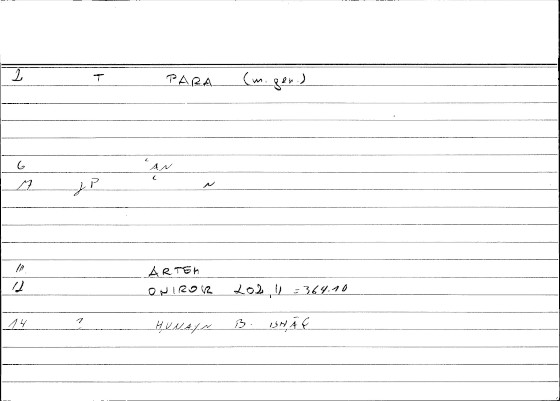 1 T PARA (m. gen.)
6 ʿAN
M gP ʿ N
11 ARTEM
12 ONIROKR 202,11 = 364.10
14 ? ḤUNAYN B. ISḤĀQ